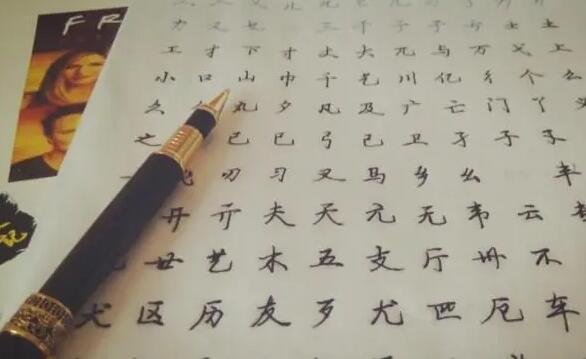 F R
力 又 三 干 于 亏 士 土
工 才 下 寸 丈 大 兀 与 万 弋 上
小 口 山 巾 千 乞 川 亿 彳 个 么
久 丸 夕 凡 及 广 亡 门 丫
之 已 巳 弓 己 卫 孑 子 孓
飞 刃 习 叉 马 乡 幺 丰
开 亓 夫 天 元 无 韦 云
廿 艺 木 五 支 厅 卅 不
犬 区 历 友 歹 尤 匹 厄 车